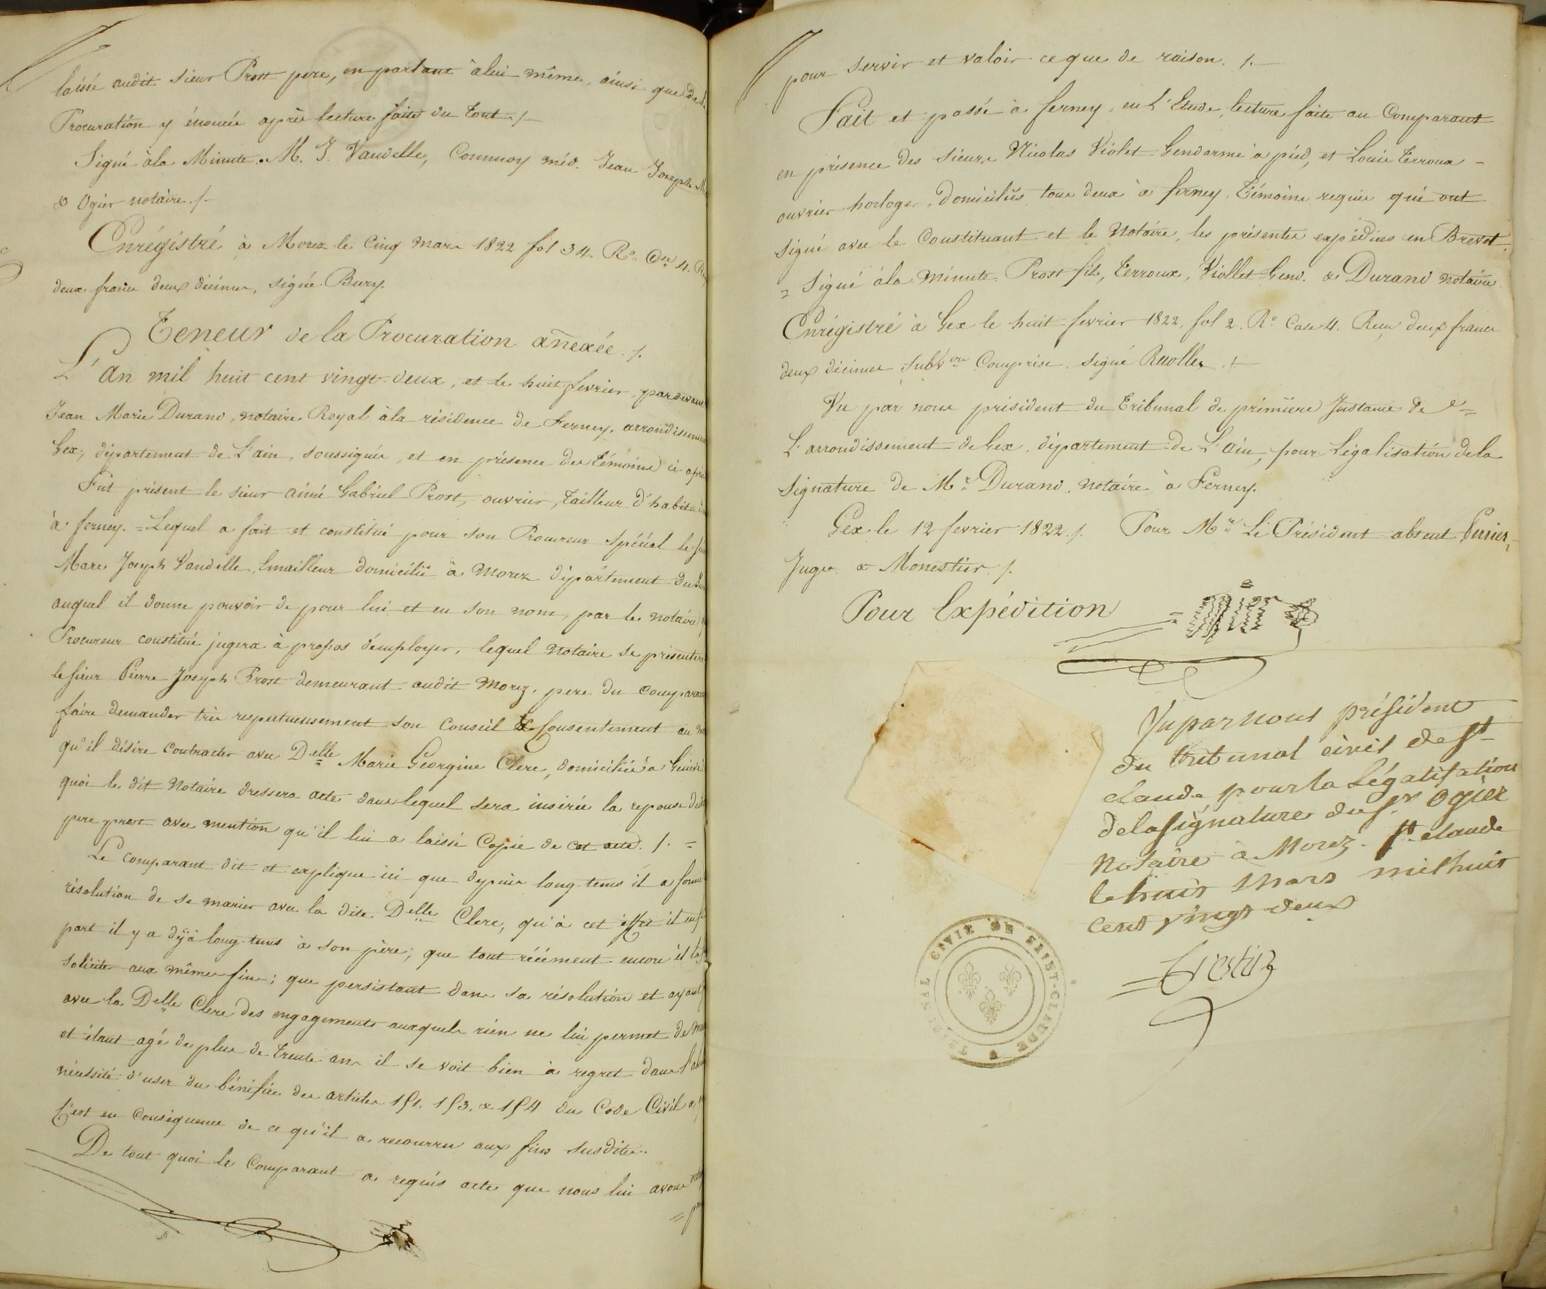 laissé audit sieur Prost pere, en parlant à lui même, ainsi que de la
Procuration y énoncée après lecture faite du tout ./.
Signé à la Minute. M. J. Vandelle, Jean Joseph
& Ogier notaire ./.
Enrégistré à Morez le Cinq mars 1822 fol 34. Ro. Case 4.
deux francs deux décimes, signé Bury.
Teneur de la Procuration annexée ./.
L'an mil huit cent vingt-deux, et le huit fevrier pardevant
Jean Marie Durand, notaire Royal à la résidence de Ferney, arrondissement
Gex, département de L'ain, soussigné, et en présence des témoins ci après
Fut présent le sieur aimé Gabriel Prost, ouvrier, tailleur d'habits
à ferney. = Lequel a fait et constitué pour son Procureur spécial le
Marc Joseph Vandelle, Emailleur domicilié à Morez département du
auquel il donne pouvoir de pour lui et en son nom, par le notaire
Procureur constitué jugera à propos d'employer, lequel notaire se présentera
le sieur Pierre Joseph Prost demeurant audit Morez, pere du comparant
faire demander très respectueusement son Conseil & Consentement au
qu'il désire contracter avec Delle Marie Georgine Clerc, domiciliée à
quoi le dit Notaire dressera acte dans lequel sera insérée la reponse
pere prost avec mention qu'il lui a laissé Copie de cet acte ./. =
Le comparant dit et explique ici que depuis long-tems il a formé
résolution de se marier avec la dite Delle Clerc, qu'à cet effet il en
part il y a déjà long-tems à son père; que tout récément encore il l'a
solicité aux même fins; que persistant dans sa résolution et ayant
avec la Delle Clerc des engagements auxquels rien ne lui permet de
et étant agé de plus de trente ans il se voit bien à regret dans la
nécéssité d'user du bénéfice des articles 151. 153. & 154 du Code Civil
C'est en conséquence de ce qu'il a recourru aux fins susdites.
De tout quoi le Comparant a requis acte que nous lui avons
pour servir et valoir ce que de raison ./.
Fait et passé à ferney, en l'Etude, lecture faite au Comparant
en présence des sieurs Nicolas Violet Gendarme à pied, et Louis Terroux
ouvrier horloger, domiciliés tous deux à ferney, Témoins requis qui ont
signé avec le Constituant et le Notaire, les présentes expédiées en Brevet.
= Signé à la minute. Prost fils, Terroux, Viollet Gend. & Durand notaire
Enrégistré à Gex le huit fevrier 1822, fol 2. Ro Case 4. Reçu deux francs
deux décimes subvon Comprise signé
Vu par nous président du Tribunal de première Instance de
L'arrondissement de Gex, département de L'ain, pour Légalisation de la
signature de Mr. Durand, notaire à Ferney.
Gex le 12 fevrier 1822 ./. Pour Mr Le Président absent
Juge & Monestier ./.
Pour Expédition = Ogier
Vu par nous président
du tribunal civil de St
claude pour la Légalisation
de la signature du Sr Ogier
Notaire à Morez. St. claude
le huit Mars mil huit
cent vingt deux
TRIBUNAL CIVIL DE SAINT-CLAUDE